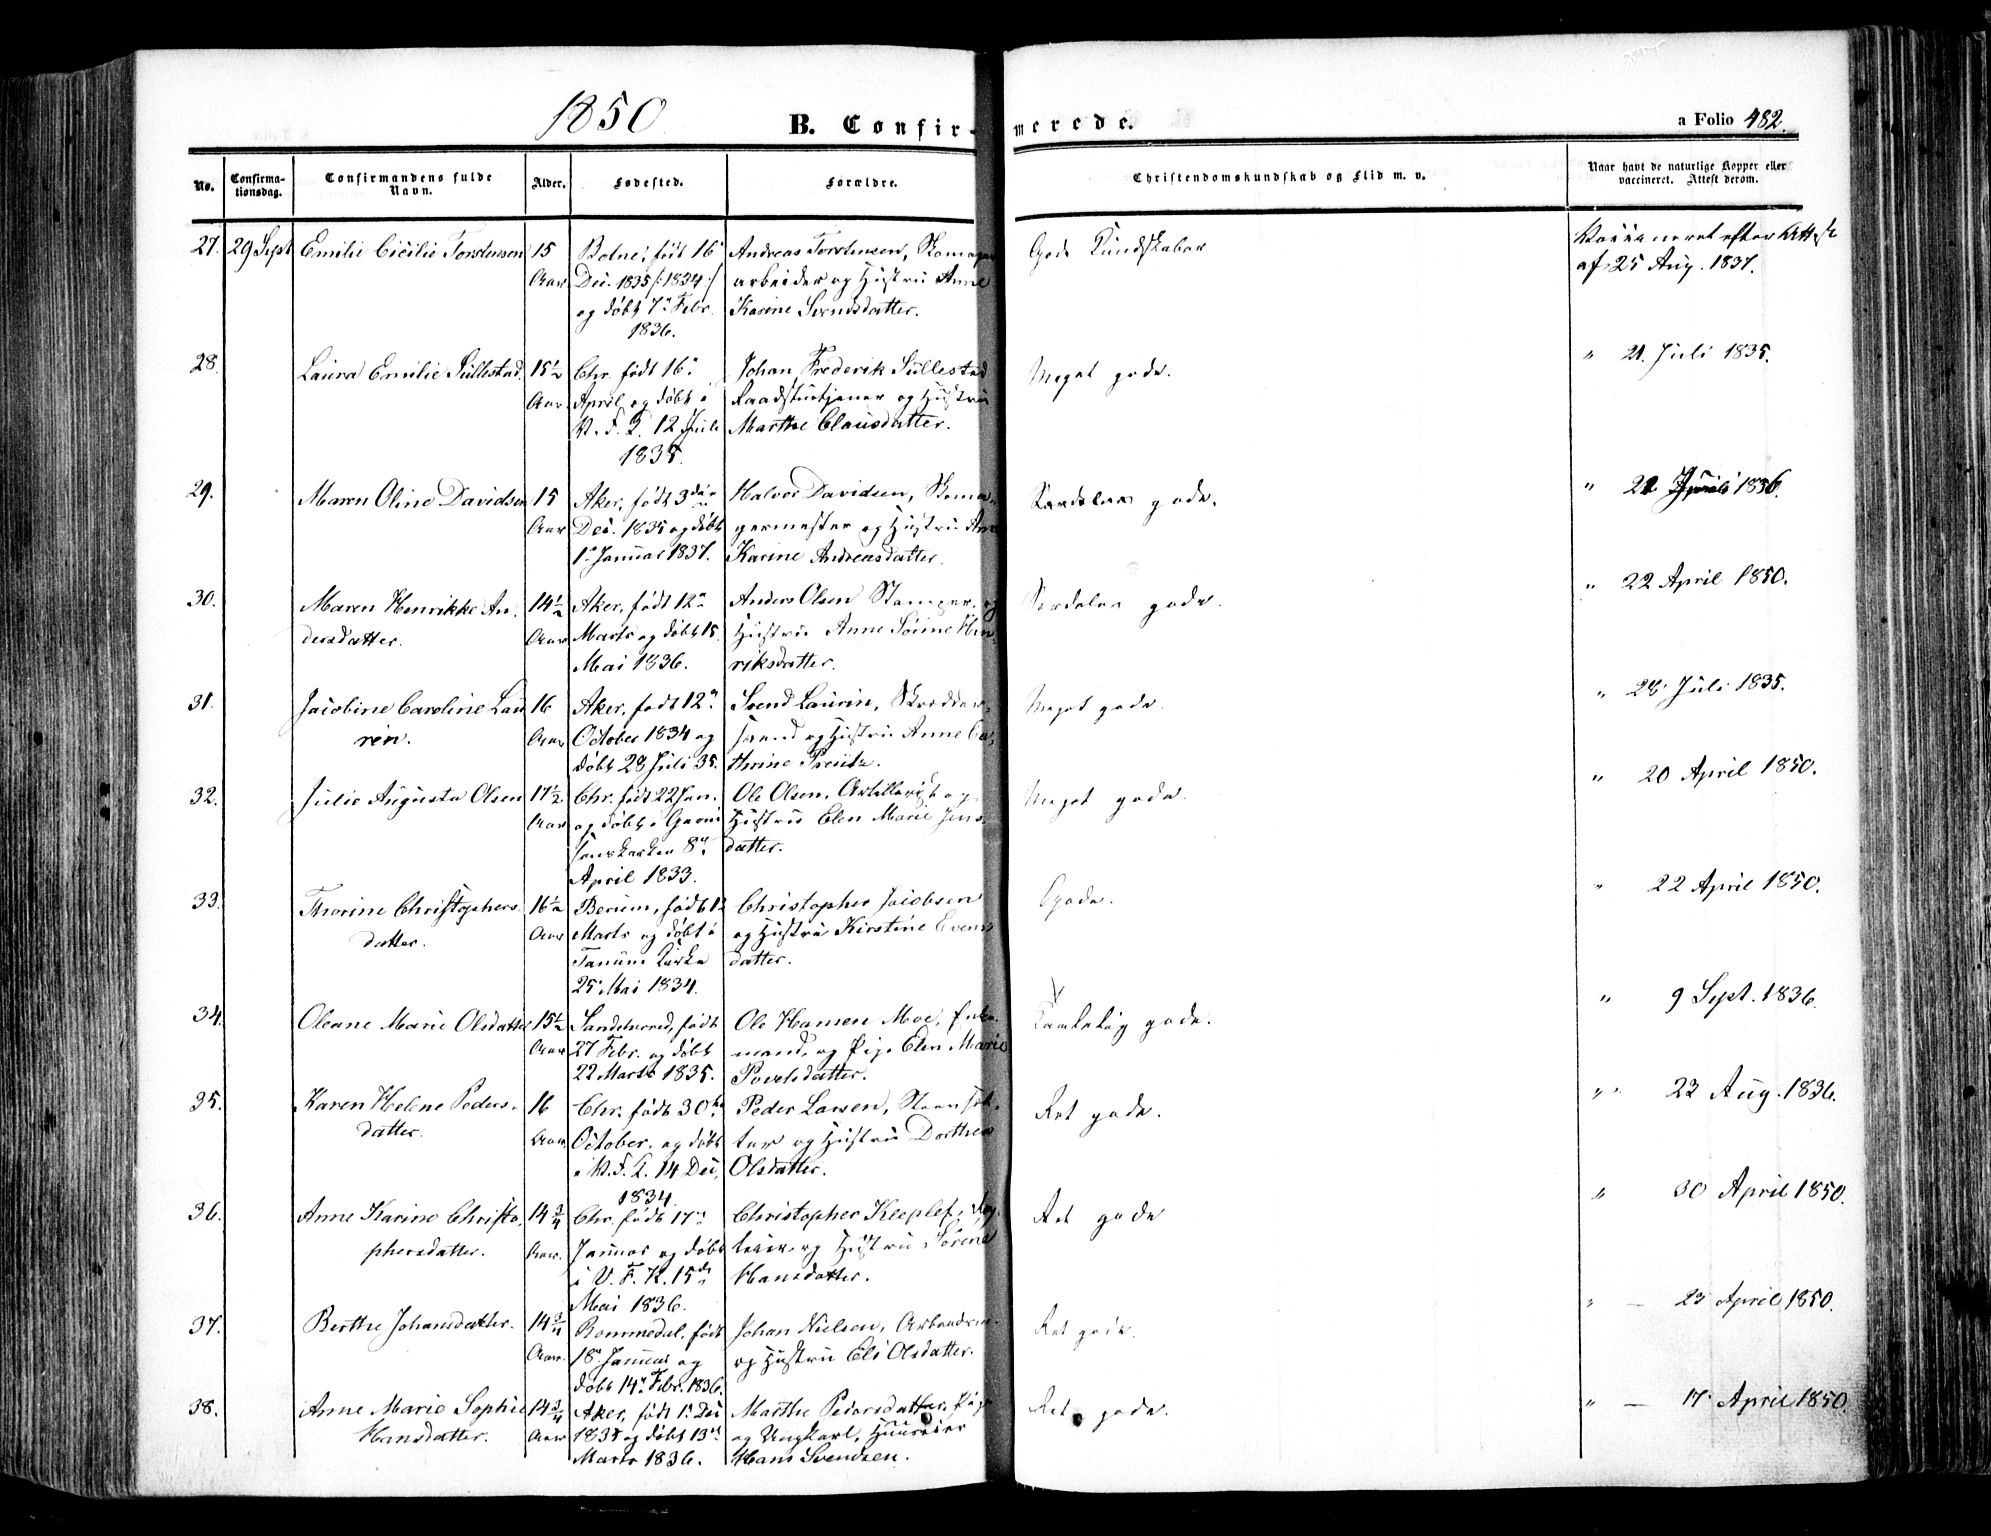 1850
B. Confirmerede.
a Folio 482.
No.
Confirmationsdag.
Confirmandens fulde Navn.
Alder.
Fødested.
Forældre.
Christendomskundskab og Flid m. v.
Naar havt de naturlige Kopper eller vaccineret. Attest derom.
27. 29 Sept Emilie Cicilie Torstensen 15 Botne, født 16 Andreas Torstensen, Gode Kundskaber Vaccineret efter Attest
Aar Dec. 1835 /: 1834 :/ arbeider og Hustru Anne af 25 Aug. 1837.
og døbt 7 Febr. Karine Svendsdatter.
1836.
28. Laura Emilie Sullestad 15½ Chr. født 16 Johan Frederik Sullestad Meget gode. " 21. Juli 1835.
Aar April og døbt i Raadstutjener og Hustru
V. F. K. 12 Juli Marthe Clausdatter.
1835.
29. Maren Oline Davidsen 15 Aker, født 3die Halvor Davidsen, Skoma- Særdeles gode. " 1836.
Aar Dec. 1835 og døbt germester og Hustru Ane
1 Januar 1837. Karine Andreasdatter.
30. Maren Henrikke An- 14½ Aker, født 12 Anders Olsen og Særdeles gode. " 22 April 1850.
dersdatter. Aar Marts og døbt 15 Hustru Anne Sørine Hen-
Mai 1836. riksdatter.
31. Jacobine Caroline Lau 16 Aker, født 12 Svend Laurin, Skrædder- Meget gode. " 28 Juli 1835.
rin. Aar October 1834 og svend og Hustru Anne Ca-
døbt 28 Juli 35. thrine Preutz.
32. Julie Augusta Olsen 17½ Chr. født 22 Jan. Ole Olsen, Artillerist og Meget gode. " 20 April 1850.
Aar og døbt i Garni Hustru Elen Marie Jens-
sonskirken 8 datter.
April 1833.
33. Thorine Christophers- 16½ Berum, født 12 Christopher Jacobsen Gode. " 22 April 1850.
datter. Aar Marts og døbt i og Hustru Kirstine Evens
Tanum Kirke datter.
25 Mai 1834.
34. Oleane Marie Olsdatter 15½ født Ole Hansen Moe, Enke- Temmelig gode. " 9 Sept. 1836.
Aar 27 Febr. og døbt mand, og Pige Elen Marie
22 Marts 1835. Povelsdatter.
35. Karen Helene Peders- 16 Chr. født 30te Peder Larsen, Ret gode. " 23 Aug. 1836.
datter. Aar October, og døbt og Hustru Dorthea
i V. F. K. 14 Dec, Olsdatter.
1834.
36. Anne Karine Christo- 14¾ Chr. født 17 Christopher Ret gode " 30 April 1850.
phersdatter. Aar. Januar og døbt og Hustru Sørine
i V. F. K. 15de Hansdatter.
Mai 1836.
37. Berthe Johansdatter. 14¾ Rommedal, født Johan Nielsen, Ret gode. " — 23 April 1850.
Aar. 18 Januar og og Hustru Eli Olsdatter.
døbt 14 Febr. 1836.
38. Anne Marie Sophie 14¾ Aker, født 1 Dec Marthe Pedersdatter, Pige Ret gode. " — 17 April 1850.
Hansdatter. Aar 1835 og døbt 13 og Ungkarl, Huuseier
Marts 1836. Hans Svendsen.